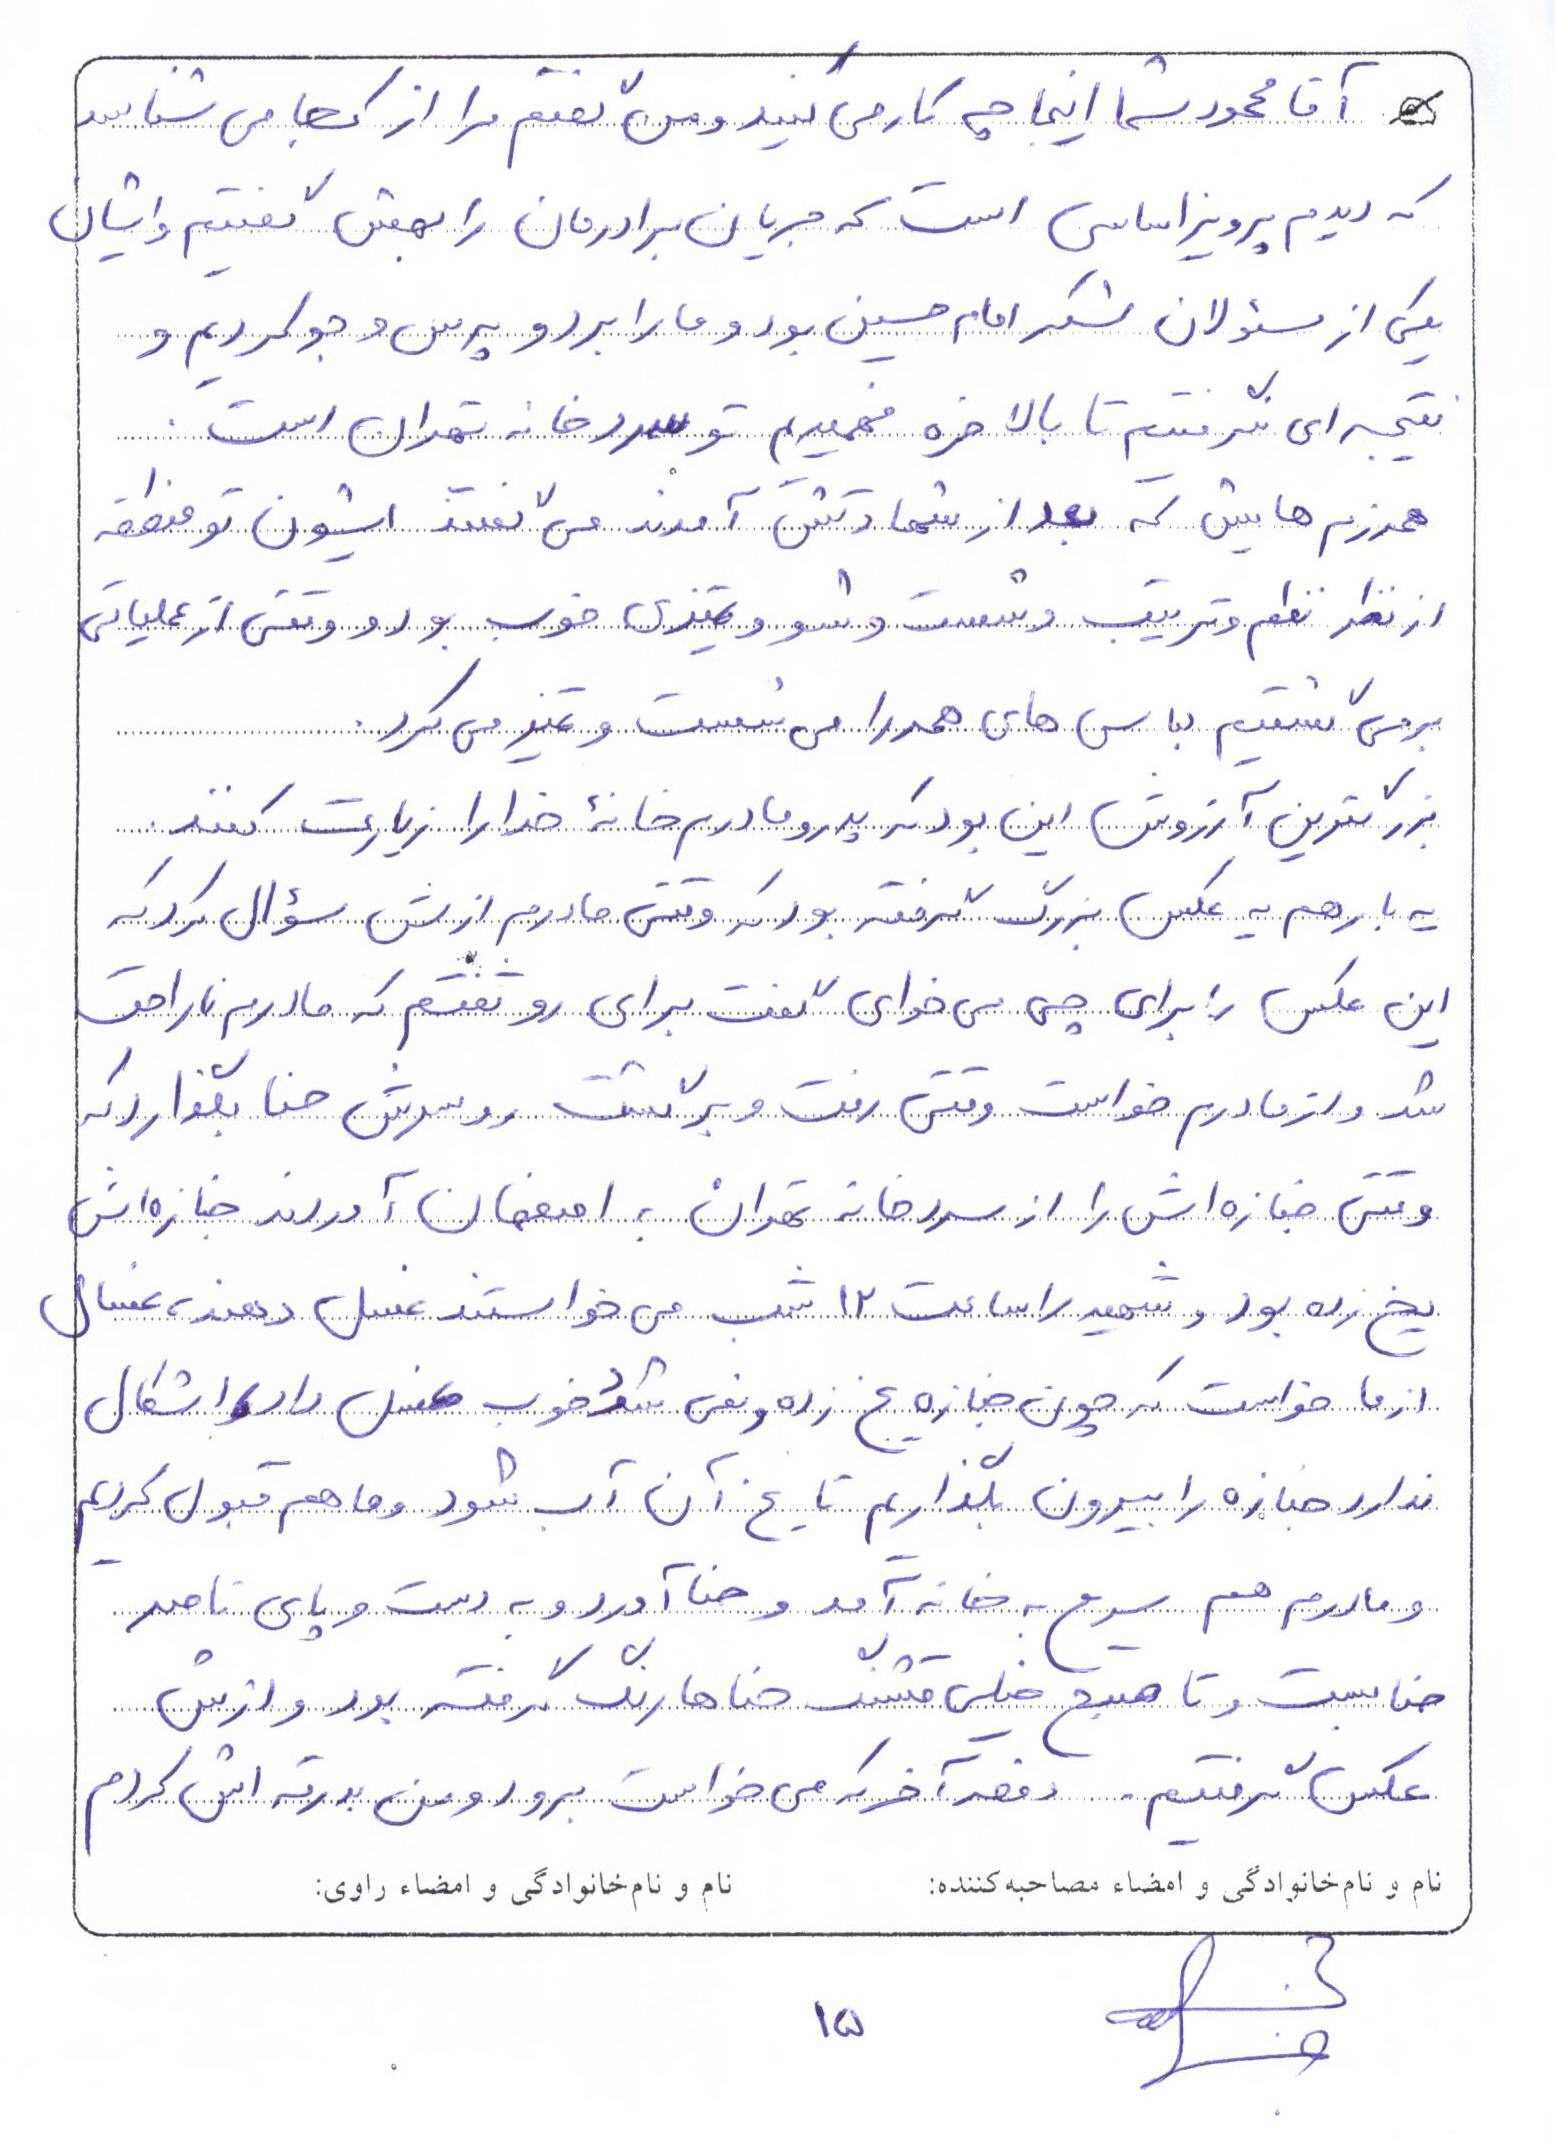 آقا محمود شما اینجا چه کار می کنید و من گفتم مرا از کجا می شناسد
که دیدم پرویز اساسی است که جریان برادرمان را بهش گفتیم و ایشان
یکی از مسئولان لشکر امام حسین بود و ما را برد و پرس و جو کردیم و
نتیجه ای نگرفتیم تا بالاخره فهمیدیم تو سردخانه تهران است.
همرزم هایش که بعد از شهادتش آمدند می گفتند ایشون تو منطقه
از نظر نظم و ترتیب و شست و شو و تمیزی خوب بود و وقتی از عملیاتی
برمی گشتیم لباس های همه را می شست و تمیز می کرد.
بزرگترین آرزوش این بود که پدر و مادرم خانهٔ خدا را زیارت کنند.
یه بار هم یه عکس بزرگ گرفته بود که وقتی مادرم ازش سؤال کرد که
این عکس را برای چی می خوای گفت برای رو که مادرم ناراحت
شد و از مادرم خواست وقتی رفت و برگشت رو سرش حنا بگذارد که
وقتی جنازه اش را از سردخانه تهران به اصفهان آوردند جنازه اش
یخ زده بود و شهید را ساعت ۱۲ شب می خواستند غسل دهند، غسال
از ما خواست که چون جنازه یخ زده و نمی شود خوب غسل داد، اشکال
ندارد جنازه را بیرون بگذاریم تا یخ آن آب شود و ما هم قبول کردیم
و مادرم هم سریع به خانه آمد و حنا آورد و به دست و پای ناصر
حنا بست و تا صبح خیلی قشنگ حناها رنگ گرفته بود و ازش
عکس گرفتیم. دفعه آخر که می خواست برود و من بدرقه اش کردم
نام و نام‌خانوادگی و امضاء مصاحبه‌کننده: نام و نام‌خانوادگی و امضاء راوی:
۱۵